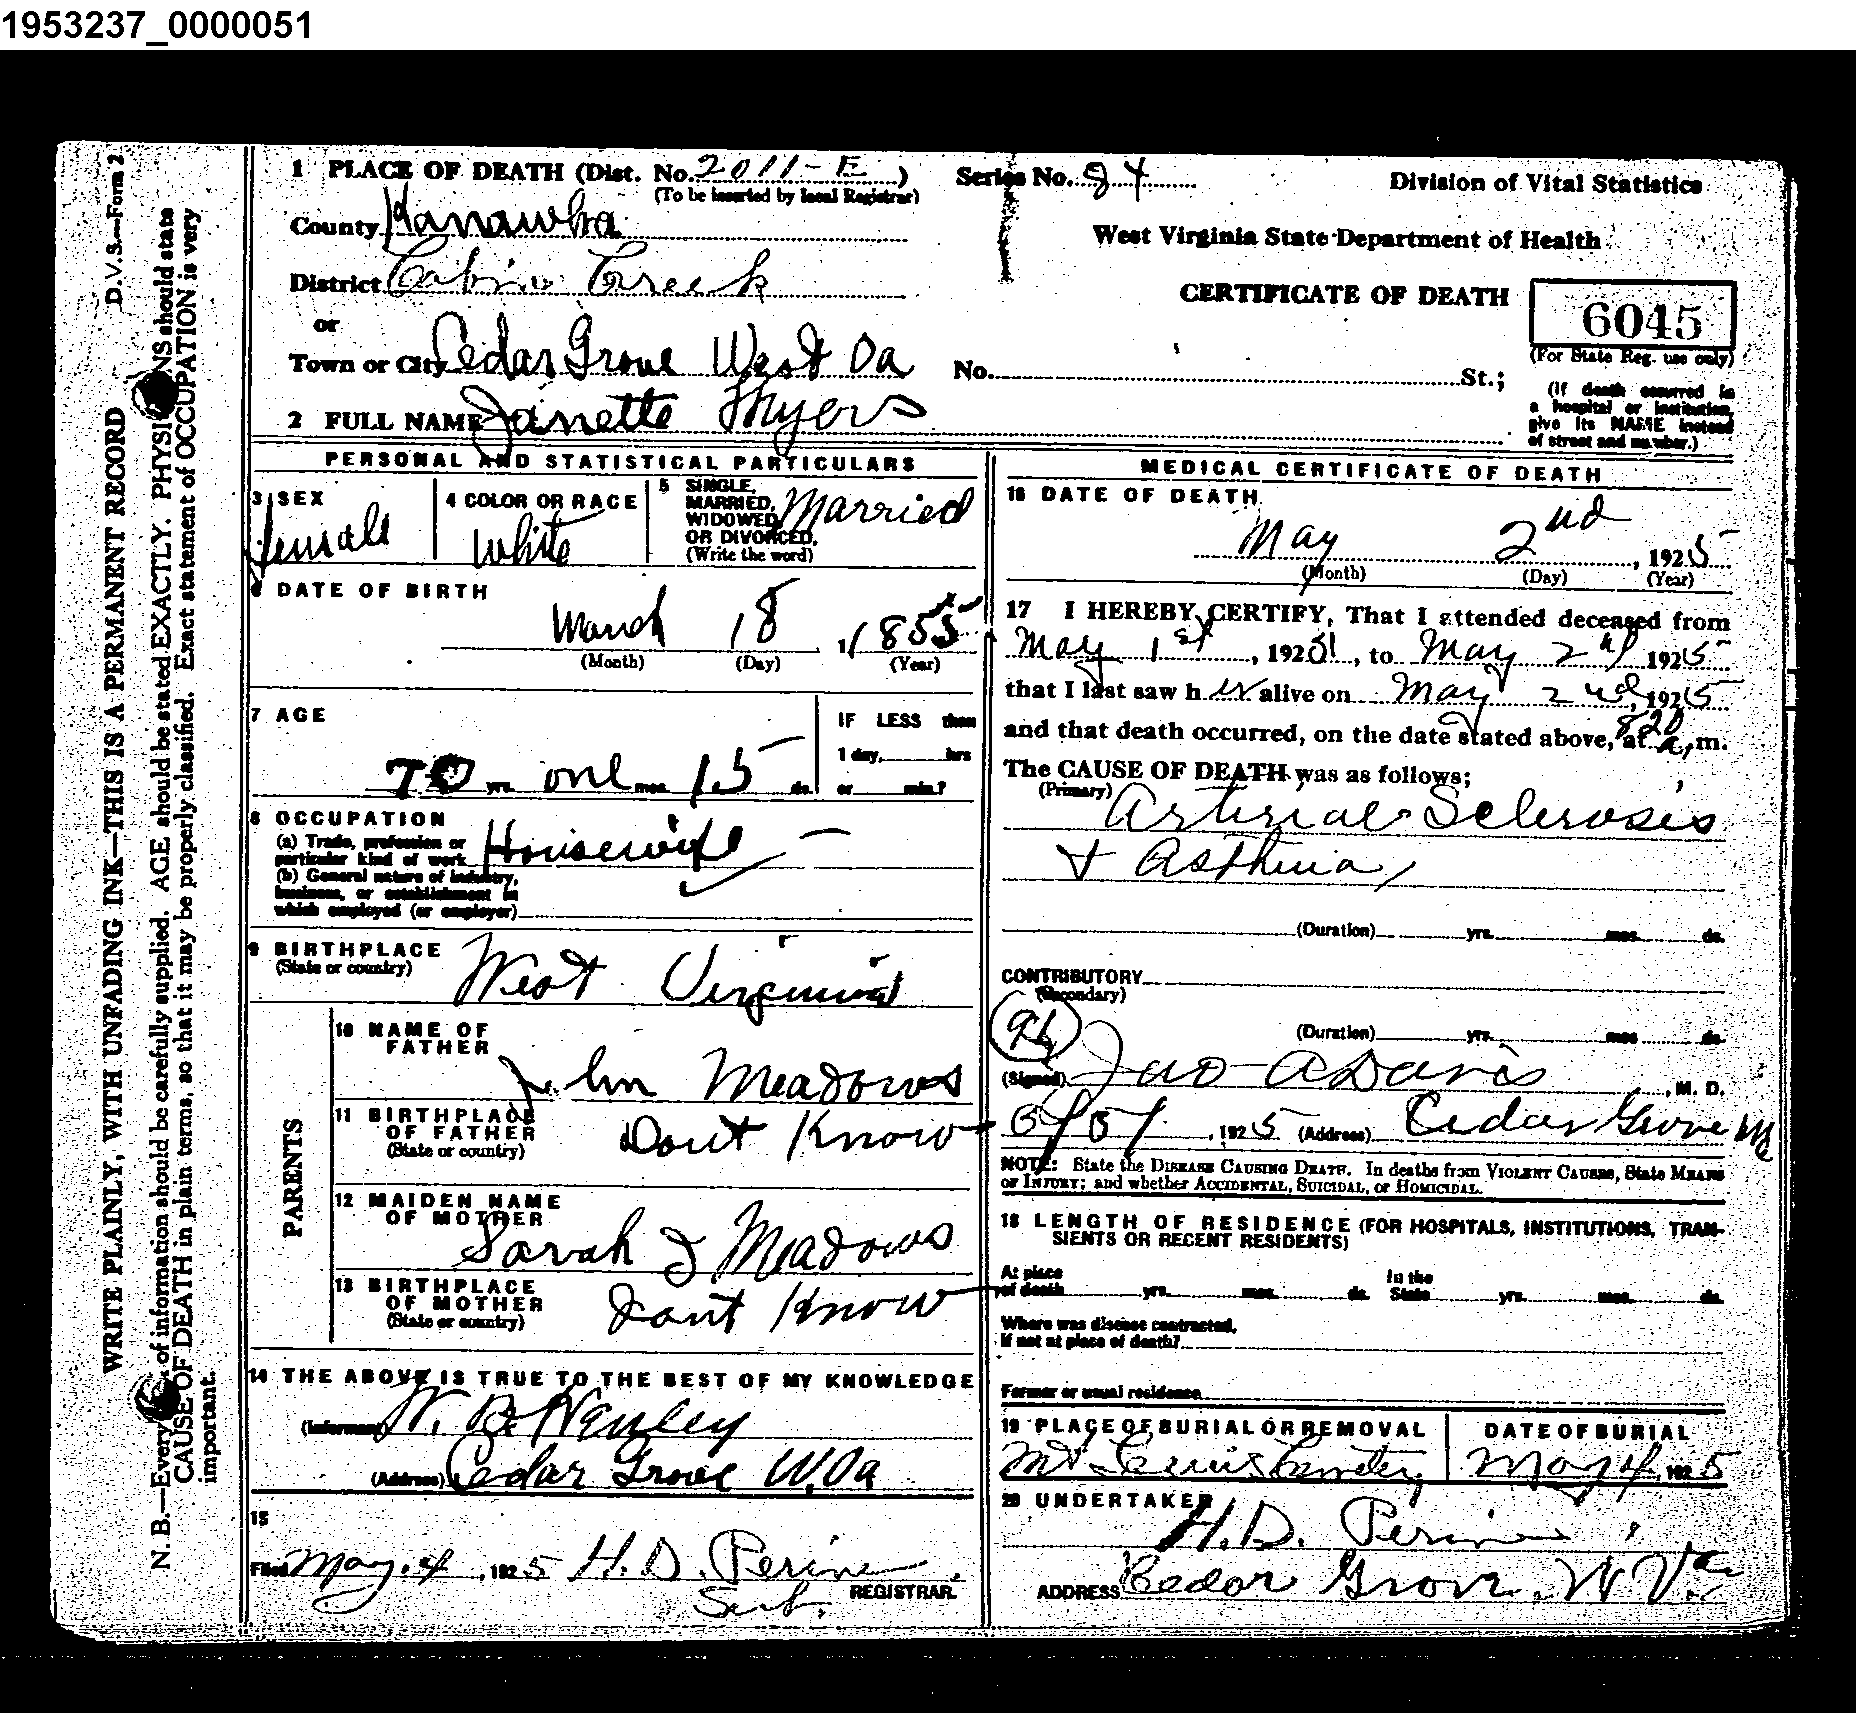 1953237_0000051
D.V.S.—Form 2
WRITE PLAINLY, WITH UNFADING INK—THIS IS A PERMANENT RECORD
N. B.—Every of information should be carefully supplied. AGE should be stated EXACTLY. PHYSI NS should state
CAUSE OF DEATH in plain terms, so that it may be properly classified. Exact statement of OCCUPATION is very
important.
1 PLACE OF DEATH (Dist. No. 2011-E )
(To be inserted by local Registrar)
County Kanawha
District Cabin Creek
or
Town or City Cedar Grove West Va
2 FULL NAME Janette Myers
Series No. 84
Division of Vital Statistics
West Virginia State Department of Health
CERTIFICATE OF DEATH
6045
(For State Reg. use only)
No. St.;
(If death occurred in
a hospital or institution,
give its NAME instead
of street and number.)
PERSONAL AND STATISTICAL PARTICULARS
3 SEX
female
4 COLOR OR RACE
White
5 SINGLE,
MARRIED,
WIDOWED
OR DIVORCED.
(Write the word)
Married
6 DATE OF BIRTH
March 18, 1855
(Month) (Day) (Year)
7 AGE
70 yrs. one mos. 15 ds.
IF LESS than
1 day, hrs
or min.?
8 OCCUPATION
(a) Trade, profession or
particular kind of work Housewife
(b) General nature of industry,
business, or establishment in
which employed (or employer)
9 BIRTHPLACE
(State or country)
West Virginia
PARENTS
10 NAME OF
FATHER
John Meadows
11 BIRTHPLACE
OF FATHER
(State or country)
Dont Know
12 MAIDEN NAME
OF MOTHER
Sarah J Meadows
13 BIRTHPLACE
OF MOTHER
(State or country)
Dont Know
14 THE ABOVE IS TRUE TO THE BEST OF MY KNOWLEDGE
(Informant) W. B. Henley
(Address) Cedar Grove W.Va
15
Filed May. 4, 1925 H. D. Perine
Sub. REGISTRAR.
MEDICAL CERTIFICATE OF DEATH
16 DATE OF DEATH
May 2nd, 1925
(Month) (Day) (Year)
17 I HEREBY CERTIFY, That I attended deceased from
May 1st, 192, to May 2nd 1925
that I last saw her alive on May 2nd, 1925
and that death occurred, on the date stated above, at 820 a, m.
The CAUSE OF DEATH was as follows:
(Primary) Arterial Sclerosis
+ Asthma,
(Duration) yrs. mos. ds.
CONTRIBUTORY
(Secondary)
(Duration) yrs. mos. ds.
(Signed) Jno A Davis, M. D.
5/5/, 1925 (Address) Cedar Grove
NOTE: State the DISEASE CAUSING DEATH. In deaths from VIOLENT CAUSES, State MEANS
OF INJURY; and whether ACCIDENTAL, SUICIDAL, or HOMICIDAL.
18 LENGTH OF RESIDENCE (FOR HOSPITALS, INSTITUTIONS, TRAN-
SIENTS OR RECENT RESIDENTS)
At place
of death yrs. mos. ds. In the
State yrs. mos. ds.
Where was disease contracted,
if not at place of death?
Former or usual residence
19 PLACE OF BURIAL OR REMOVAL
Mt Lewis
DATE OF BURIAL
May 4, 1925
20 UNDERTAKER
H. D. Perine
ADDRESS Cedar Grove, W Va